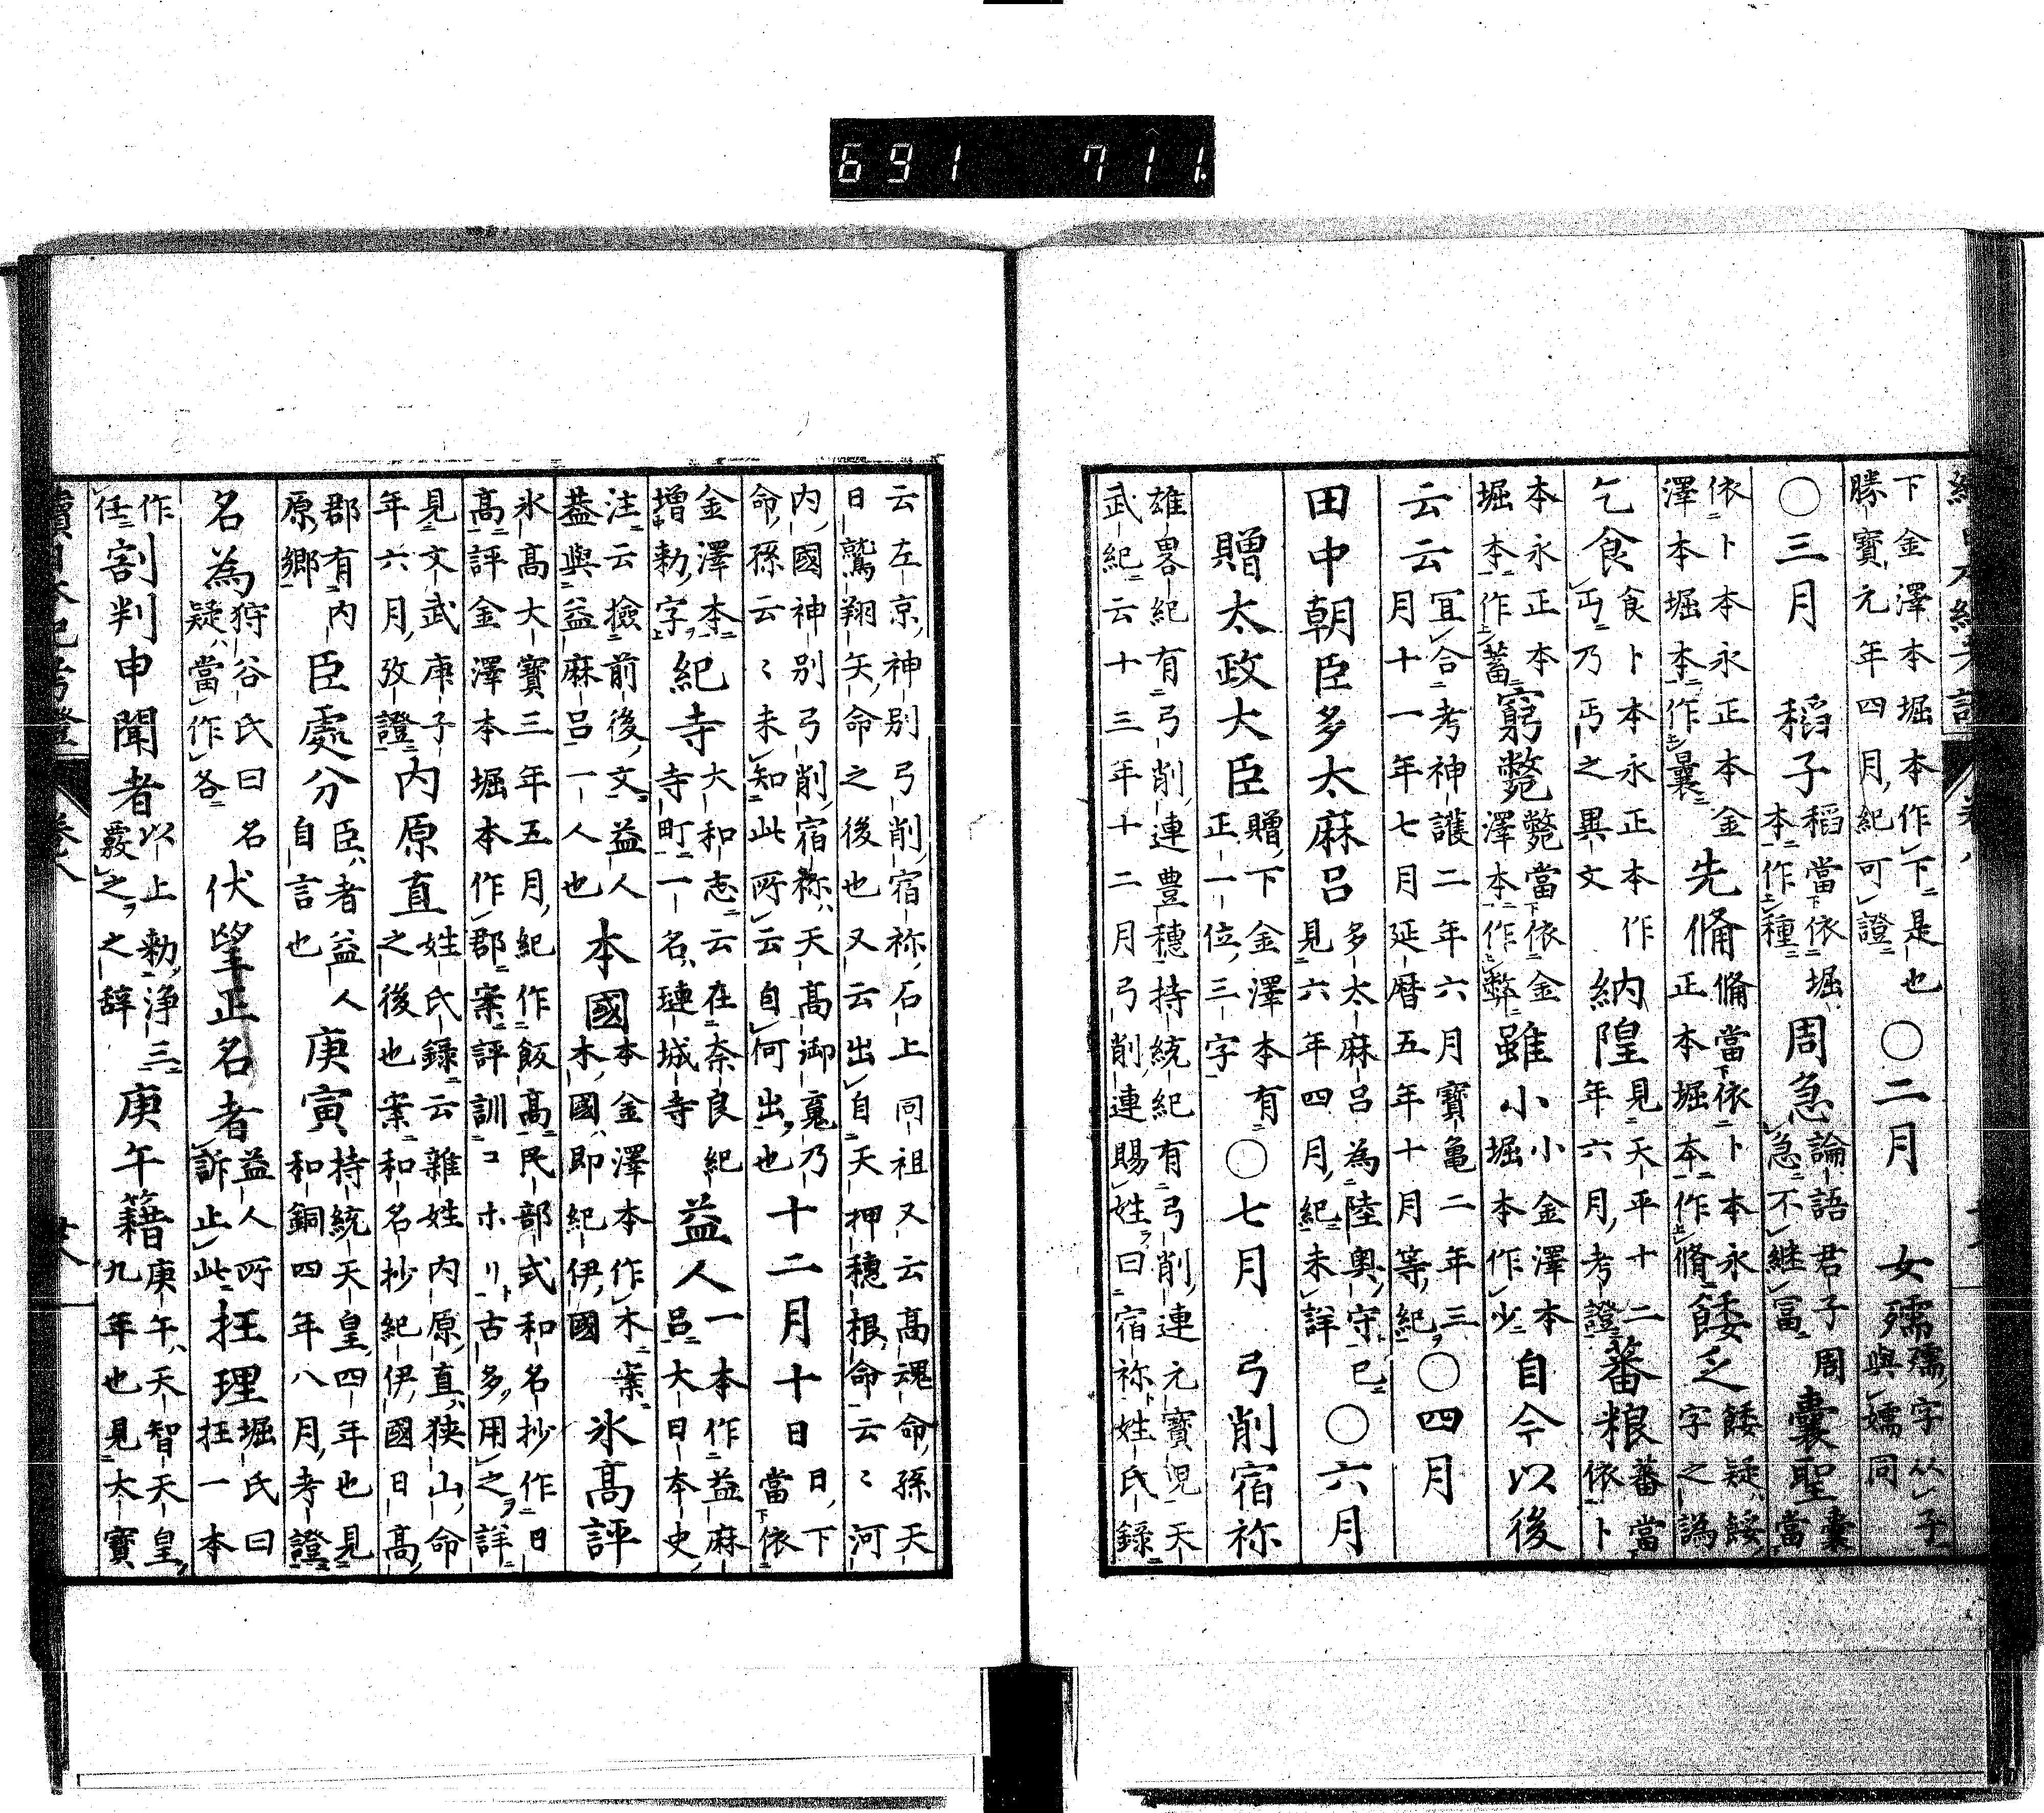 691 711.
下金澤本堀本作下是也〇二月 女孺孺字从子
勝寶元年四月紀可證 與嬬同
〇三月 稻子稻當依堀本作種 周急論語君子周急不継冨 嚢聖嚢當
依卜本永正本金澤本堀本作曩 先脩脩當依卜本永正本堀本作脩 餧乏餧疑餒字之譌
乞食食卜本永正本作丐乃丐之異文 納隍見天平十二年六月考證 蕃粮蕃當依卜
本永正本堀本作蓄 窮斃斃當依金澤本作弊 雖小小金澤本堀本作少 自今以後
云云冝合考神護二年六月寶亀二年三月十一年七月延暦五年十月等紀〇四月
田中朝臣多太麻呂多太麻呂為陸奧守已見六年四月紀未詳〇六月
贈太政大臣贈下金澤本有正一位三字〇七月 弓削宿祢
雄畧紀有弓削連豊穗持統紀有弓削連元寶児天
武紀云十三年十二月弓削連賜姓曰宿祢姓氏録
云左京神别弓削宿祢石上同祖又云高魂命孫天
日鷲翔矢命之後也又云出自天押穗根命云〻河
内國神别弓削宿祢天高御䰠乃命孫云〻未知此所云自何出也 十二月十日日下當依
金澤本增勅字 紀寺大和志云在奈良紀寺町一名璉城寺 益人一本作益麻呂大日本史
注云撿前後文益人葢與益麻呂一人也 本國本金澤本作木案木國即紀伊國 氷髙評
氷髙大寶三年五月紀作飯髙民部式和名抄作日
髙評金澤本堀本作郡案評訓コホリ古多用之詳
見文武庚子年六月攷證 内原直姓氏録云雜姓内原直狭山命之後也案和名抄紀伊國日髙
郡有内原郷 臣處分臣者益人自言也 庚寅持統天皇四年也見和銅四年八月考證
名為狩谷氏曰名疑當作各 伏望正名者益人所訴止此 抂理堀氏曰抂一本
作任 割判申聞者以上勅浄三覈之之辞 庚午籍庚午天智天皇九年也見大寶